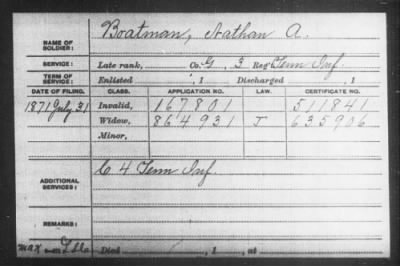 NAME OF SOLDIER: Boatman, Nathan A.
SERVICE: Late rank, Co. G, 3 Reg't Tenn Inf.
TERM OF SERVICE: Enlisted , 1 Discharged , 1
DATE OF FILING. CLASS. APPLICATION NO. LAW. CERTIFICATE NO.
1871 July 31 Invalid, 167801 511841
Widow, 864931 J 635906
Minor,
ADDITIONAL SERVICES: C 4 Tenn Inf.
REMARKS:
Died , 1 , at